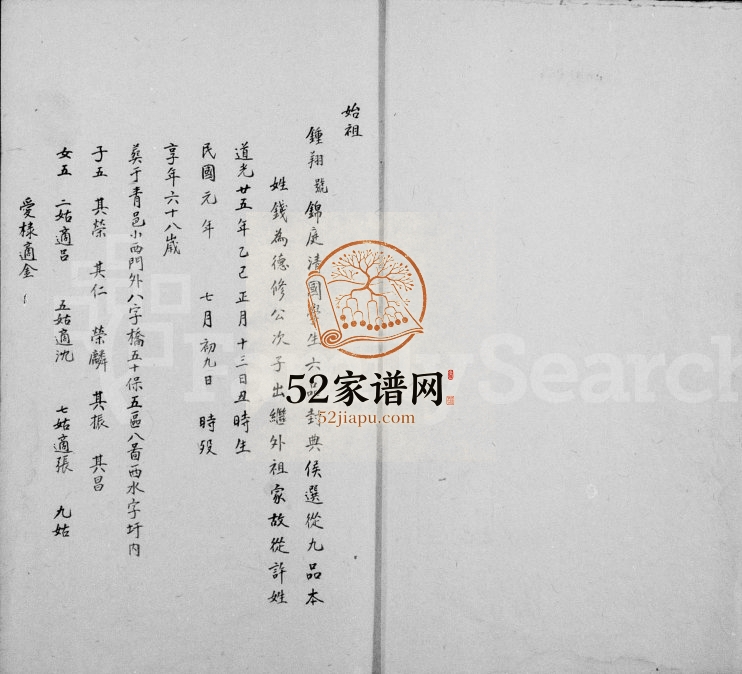 始祖
鍾翔號錦庭清國學生六品封典候選從九品本
姓錢為德修公次子出繼外祖家故從許姓
道光廿五年乙巳正月十三日丑時生
民國元年 七月初九日 時歿
享年六十八歲
葬于青邑小西門外八字橋五十保五區八啚西水字圩内
子五 其榮 其仁 榮麟 其振 其昌
女五 二姑適呂 五姑適沈 七姑適張 九姑
愛棣適金
52家谱网
52jiapu.com
FamilySearch